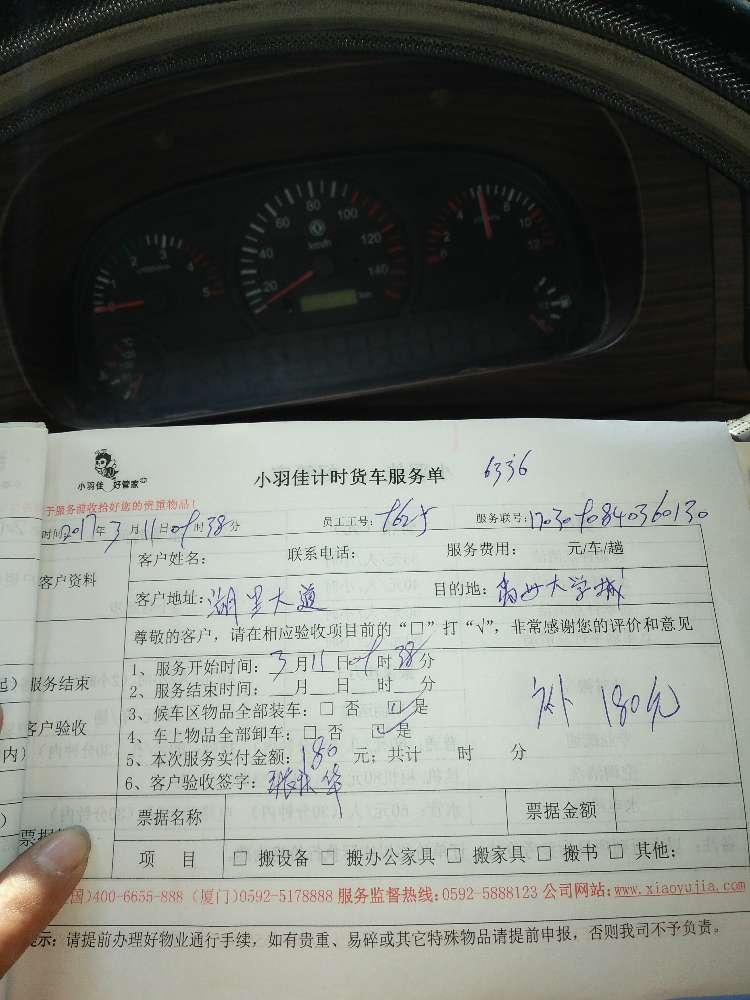 20 40 60 80 100 120 140
km/h
0 1 2 3 4 5
0 2 4 6 8 10 12
小羽佳 好管家
小羽佳计时货车服务单 6336
于服务前收拾好您的贵重物品!
时间:2017年3月11日09时38分 员工工号: 服务联号:
客户资料
客户姓名: 联系电话: 服务费用: 元/车/趟
客户地址:湖里大道 目的地:翔安大学城
尊敬的客户,请在相应验收项目前的“□”打“√”,非常感谢您的评价和意见
服务结束
客户验收
1、服务开始时间:3月11日09时38分
2、服务结束时间:__月__日__时__分
3、候车区物品全部装车:□ 否 ☑ 是
4、车上物品全部卸车:□ 否 ☑ 是
补 180元
5、本次服务实付金额:180元;共计 时 分
6、客户验收签字:
票据名称 票据金额
项 目 □ 搬设备 □ 搬办公家具 □ 搬家具 □ 搬书 □ 其他:
国)400-6655-888 (厦门)0592-5178888 服务监督热线:0592-5888123 公司网站:www.xiaoyujia.com
提示:请提前办理好物业通行手续,如有贵重、易碎或其它特殊物品请提前申报,否则我司不予负责。